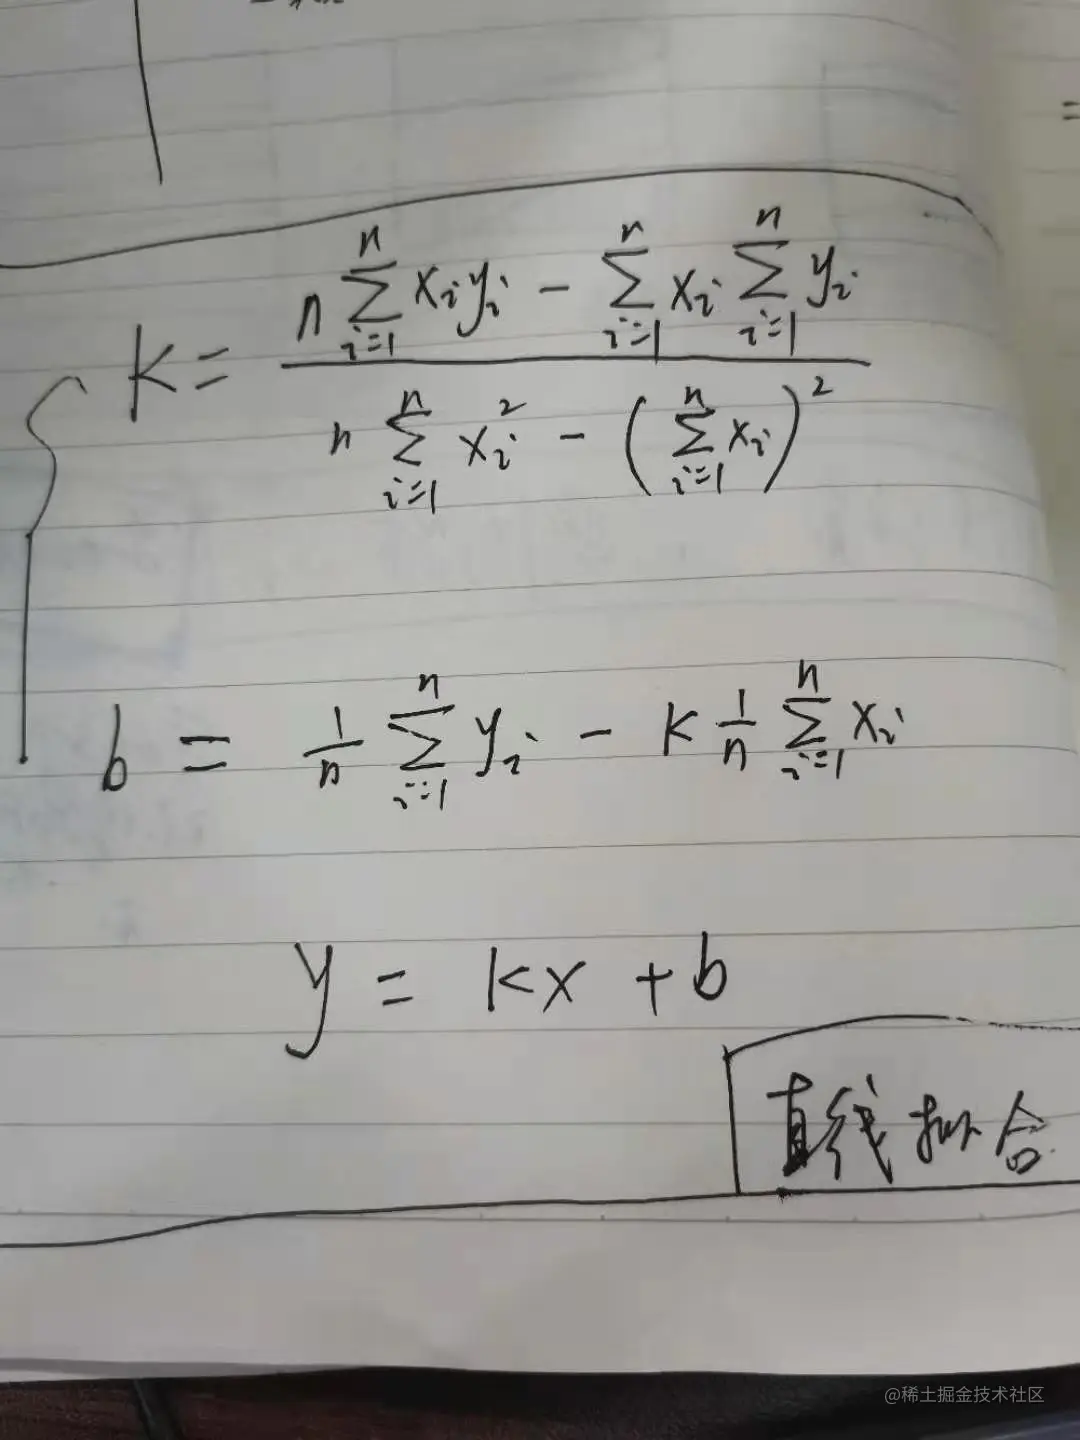 K = \frac{n \sum_{i=1}^{n} x_i y_i - \sum_{i=1}^{n} x_i \sum_{i=1}^{n} y_i}{n \sum_{i=1}^{n} x_i^2 - \left( \sum_{i=1}^{n} x_i \right)^2}
b = \frac{1}{n} \sum_{i=1}^{n} y_i - K \frac{1}{n} \sum_{i=1}^{n} x_i
y = Kx + b
直线拟合
@稀土掘金技术社区